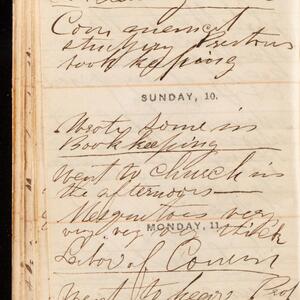 studying Prestons
book keeping
SUNDAY, 10.
Wrote some in
Book keeping
Went to church in
the afternoon—
Mesquetoes very
very very thick
MONDAY, 11.
Went to hear Prof